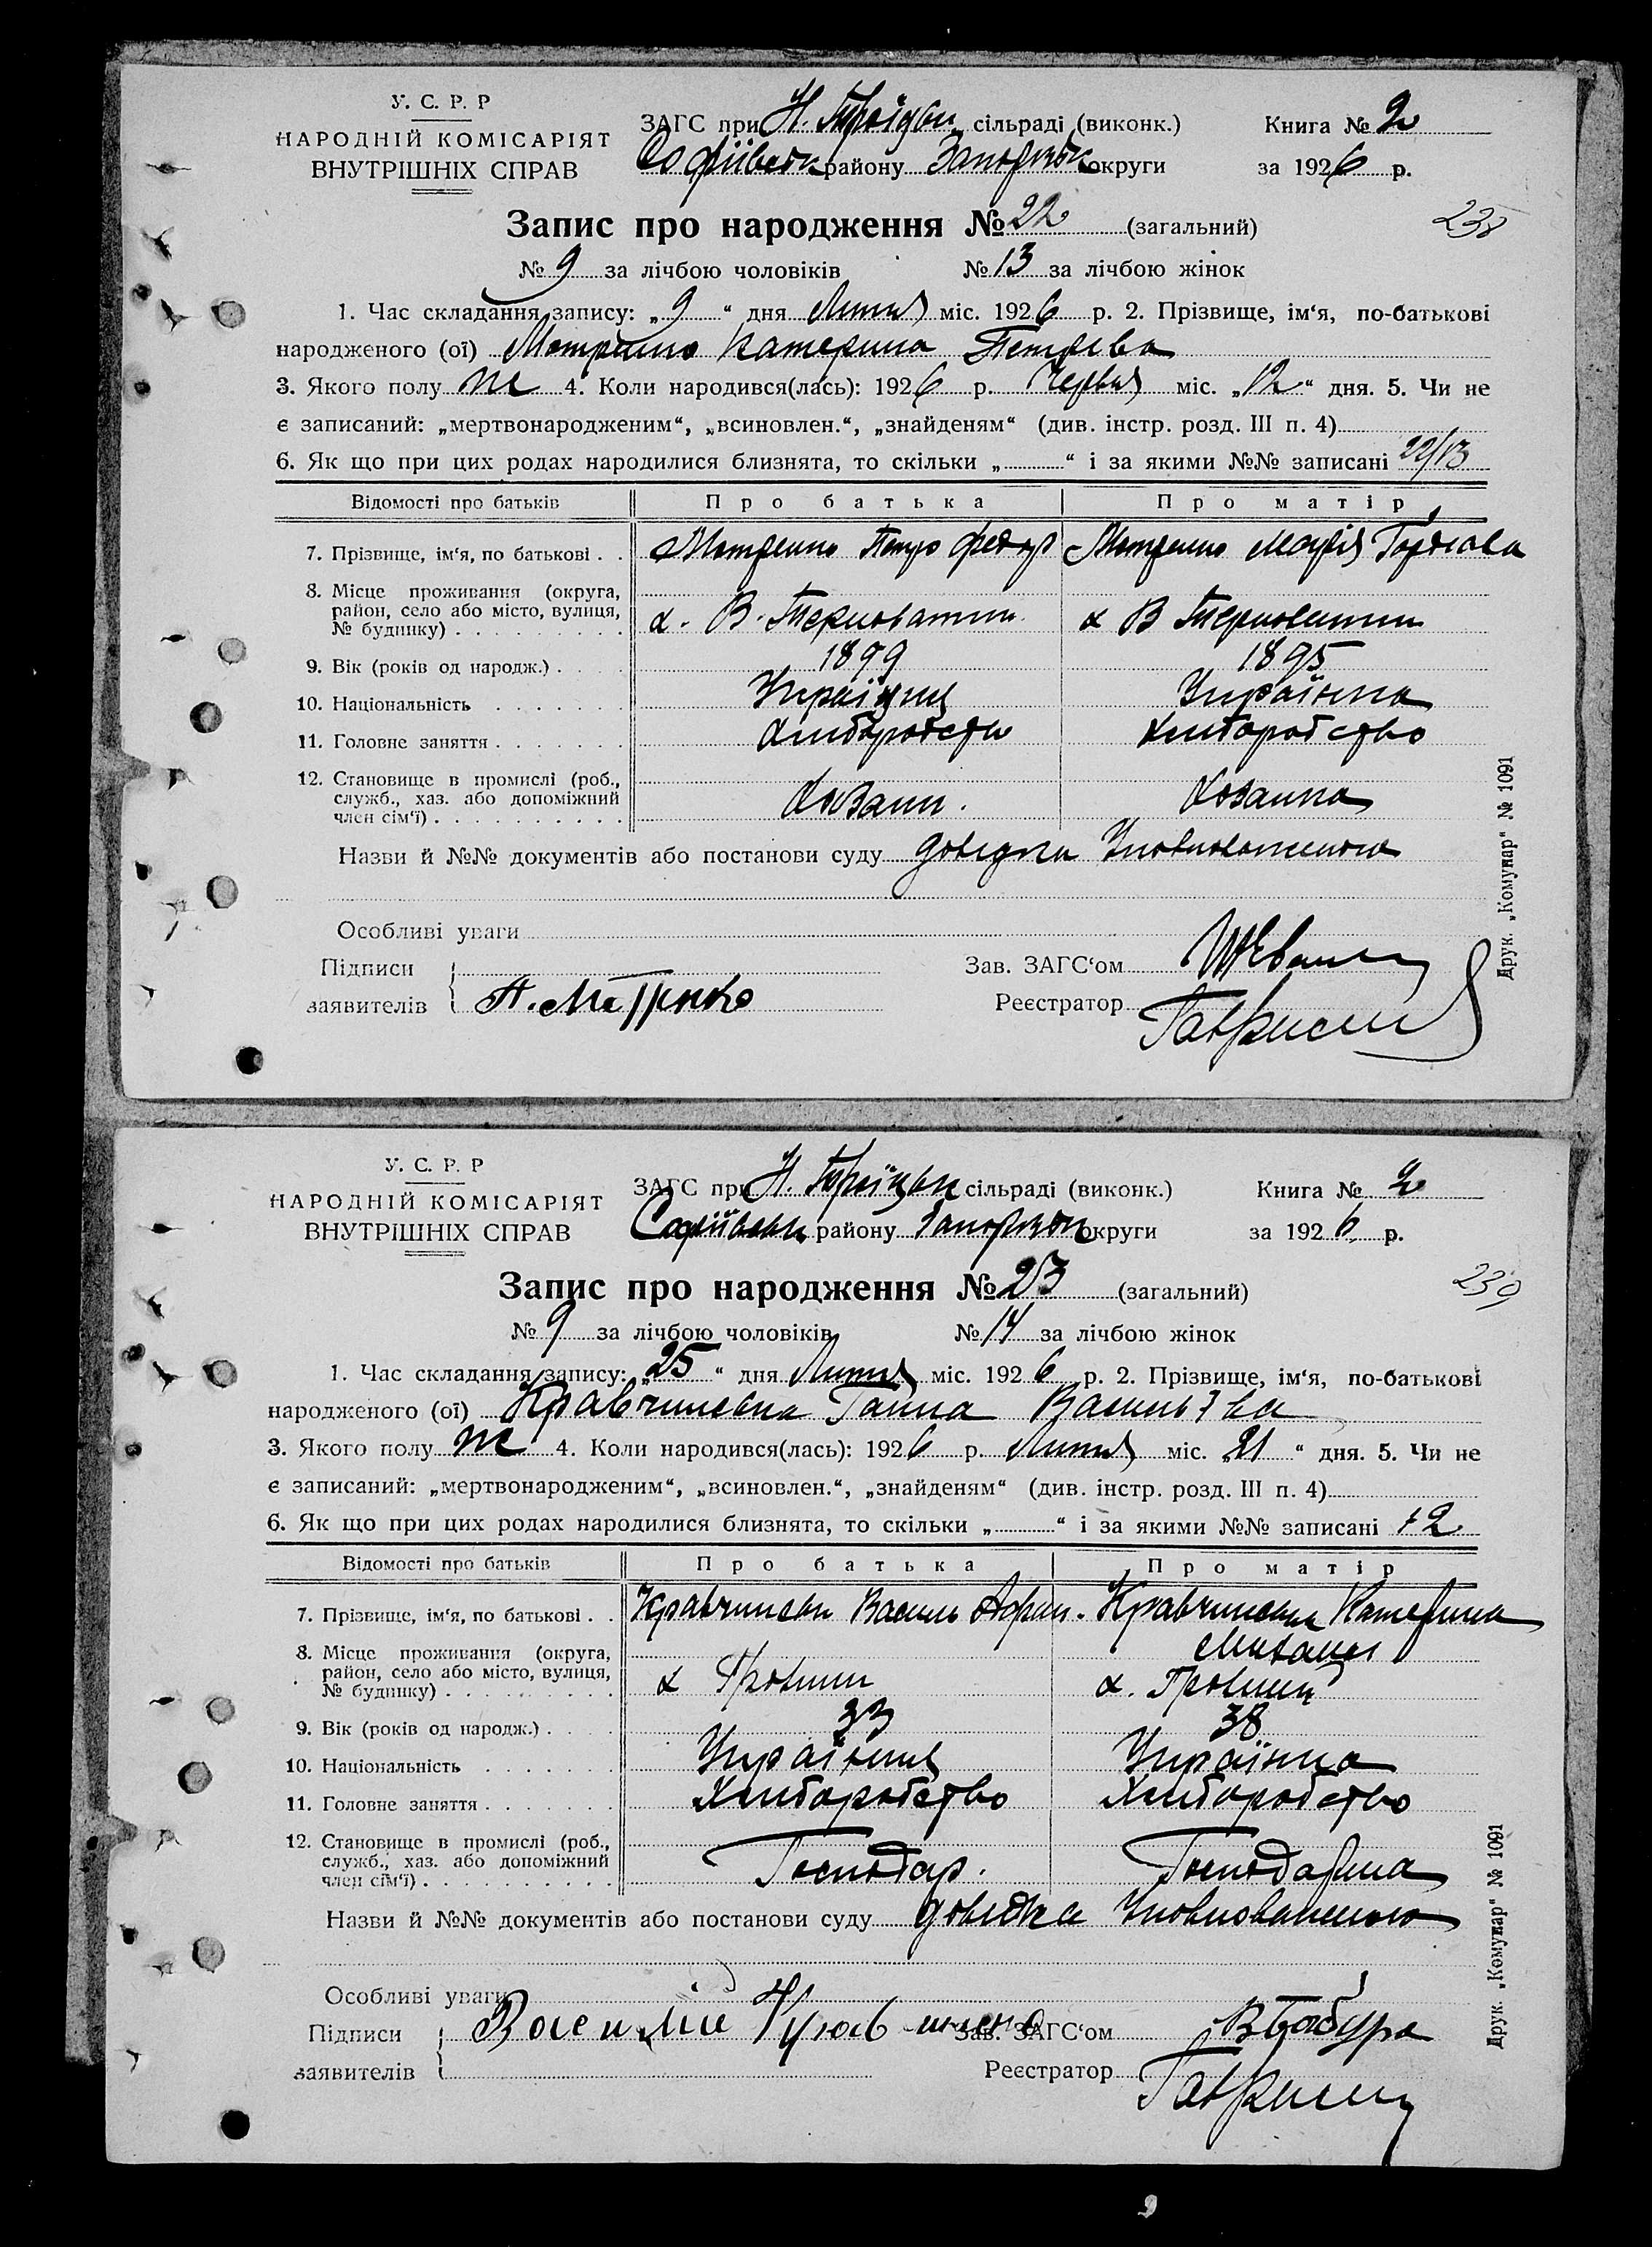 У. С. Р. Р
НАРОДНІЙ КОМІСАРІЯТ
ВНУТРІШНІХ СПРАВ
ЗАГС при Н. Троїцьк. сільраді (виконк.)
Софіївськ району Запорізьк округи
Книга № 2
за 1926 р.
Запис про народження № 22 (загальний)
238
№ 9 за лічбою чоловіків № 13 за лічбою жінок
1. Час складання запису: „9“ дня Липня міс. 1926 р. 2. Прізвище, ім‘я, по-батькові
народженого (ої) Катерина Петрова
3. Якого полу ж 4. Коли народився(лась): 1926 р. Червня міс. „12“ дня. 5. Чи не
є записаний: „мертвонародженим“, „всиновлен.“, „знайденям“ (див. інстр. розд. III п. 4)
6. Як що при цих родах народилися близнята, то скільки „ “ і за якими №№ записані 22/13
Відомості про батьків Про батька Про матір
7. Прізвище, ім‘я, по батькові . . Петро Федор Марія
8. Місце проживання (округа,
район, село або місто, вулиця,
№ будинку) . х. В. Терноватий х В Терноватий
9. Вік (років од народж.) . 1899 1895
10. Національність Українець Українка
11. Головне заняття . Хліборобство Хліборобство
12. Становище в промислі (роб.,
служб., хаз. або допоміжний
член сім‘ї) . Хозаин. Хозаика
Назви й №№ документів або постанови суду довідка Уповноваженого
Особливі уваги
Підписи
заявителів
Зав. ЗАГС‘ом
Реєстратор
Друк. „Комунар“ № 1091
У. С. Р. Р
НАРОДНІЙ КОМІСАРІЯТ
ВНУТРІШНІХ СПРАВ
ЗАГС при Н. Троїцьк сільраді (виконк.)
Софіївськ району Запорізьк округи
Книга № 2
за 1926 р.
Запис про народження № 23 (загальний)
239
№ 9 за лічбою чоловіків № 14 за лічбою жінок
1. Час складання запису: „25“ дня Липня міс. 1926 р. 2. Прізвище, ім‘я, по-батькові
народженого (ої) Кравчинська Ганна Васильєва
3. Якого полу ж 4. Коли народився(лась): 1926 р. Липня міс. „21“ дня. 5. Чи не
є записаний: „мертвонародженим“, „всиновлен.“, „знайденям“ (див. інстр. розд. III п. 4)
6. Як що при цих родах народилися близнята, то скільки „ “ і за якими №№ записані
Відомості про батьків Про батька Про матір
7. Прізвище, ім‘я, по батькові . . Кравчинськ Василь Кравчинська Катерина
8. Місце проживання (округа,
район, село або місто, вулиця,
№ будинку) . х х.
9. Вік (років од народж.) . 33 38
10. Національність Українець Українка
11. Головне заняття . Хліборобство Хліборобство
12. Становище в промислі (роб.,
служб., хаз. або допоміжний
член сім‘ї) . Господар. Господарина
Назви й №№ документів або постанови суду довідка Уповноваженого
Особливі уваги
Підписи
заявителів
Зав. ЗАГС‘ом
Реєстратор
Друк. „Комунар“ № 1091